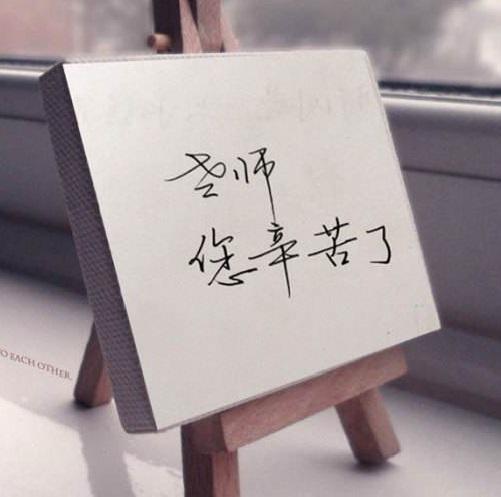 老师
您辛苦了
TO EACH OTHER.